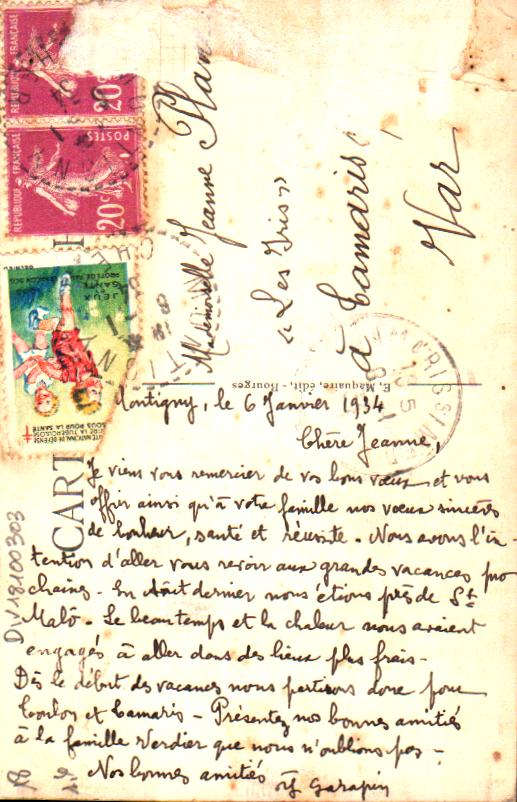 Montigny, le 6 Janvier 1934
Chère Jeanne,
Je viens vous remercier de vos bons vœux et vous
offrir ainsi qu'à votre famille nos vœux sincères
de bonheur, santé et réussite. Nous avons l'in-
tention d'aller vous revoir aux grandes vacances pro
chaines. En Août dernier nous étions près de St
Malô. Le beau temps et la chaleur nous avaient
engagés à aller dans des lieux plus frais.
Dès le début des vacances nous partirons donc pour
Toulon et Tamaris. Présentez nos bonnes amitiés
à la famille Verdier que nous n'oublions pas.
Nos bonnes amitiés
Garapin
Mademoiselle Jeanne Plan
« Les Iris »
à Tamaris
Var
E. Maquaire, édit., Bourges
CART
DIV18100303
REPUBLIQUE FRANÇAISE
20c
REPUBLIQUE FRANÇAISE
POSTES
20c
JEUX
SANTÉ
SOUS POUR LA SANTÉ